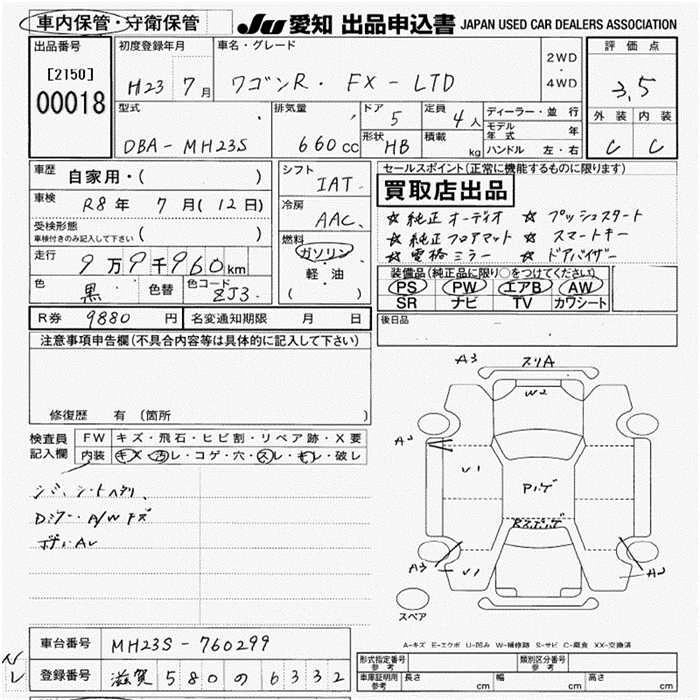 車内保管・守衛保管
JU 愛知 出品申込書 JAPAN USED CAR DEALERS ASSOCIATION
出品番号
[2150]
00018
初度登録年月
H23 7月
車名・グレード
ワゴンR・FX-LTD
2WD
・
4WD
評価点
3,5
外装 内装
C C
型式
DBA-MH23S
排気量
660cc
ドア
5
定員
4人
形状
HB
積載
kg
ディーラー・並行
モデル年式 年
ハンドル 左・右
車歴 自家用・( )
車検 R8年 7月(12日)
受検形態
車検付きのみ記入して下さい ( )
走行 9万9千960km
色 黒 色替 色コード ZJ3
シフト
IAT
冷房
AAC
燃料
ガソリン
・
軽・油
( )
セールスポイント(正常に機能するものに限ります)
買取店出品
☆純正オーディオ ☆プッシュスタート
☆純正フロアマット ☆スマートキー
☆電格ミラー ☆ドアバイザー
装備品(純正品に限り○をつけてください)
PS PW エアB AW
SR ナビ TV カワシート
R券 9880円 名変通知期限 月 日
後日品
注意事項申告欄(不具合内容等は具体的に記入して下さい)
修復歴 有 (箇所
検査員
記入欄
FW キズ・飛石・ヒビ割・リペア跡・X要
内装 キズ・汚レ・コゲ・穴・スレ・キレ・破レ
A3 スリA
W2
A2
U1
Rスポイラ
A3
U1
A2
スペア
A-キズ E-エクボ U-凹み W-補修跡 S-サビ C-腐食 XX-交換済
車台番号 MH23S-760299
登録番号 滋賀580の6332
形式指定番号
参考
類別区分番号
参考
車庫証明用
参考
長さ cm 幅 cm 高さ cm